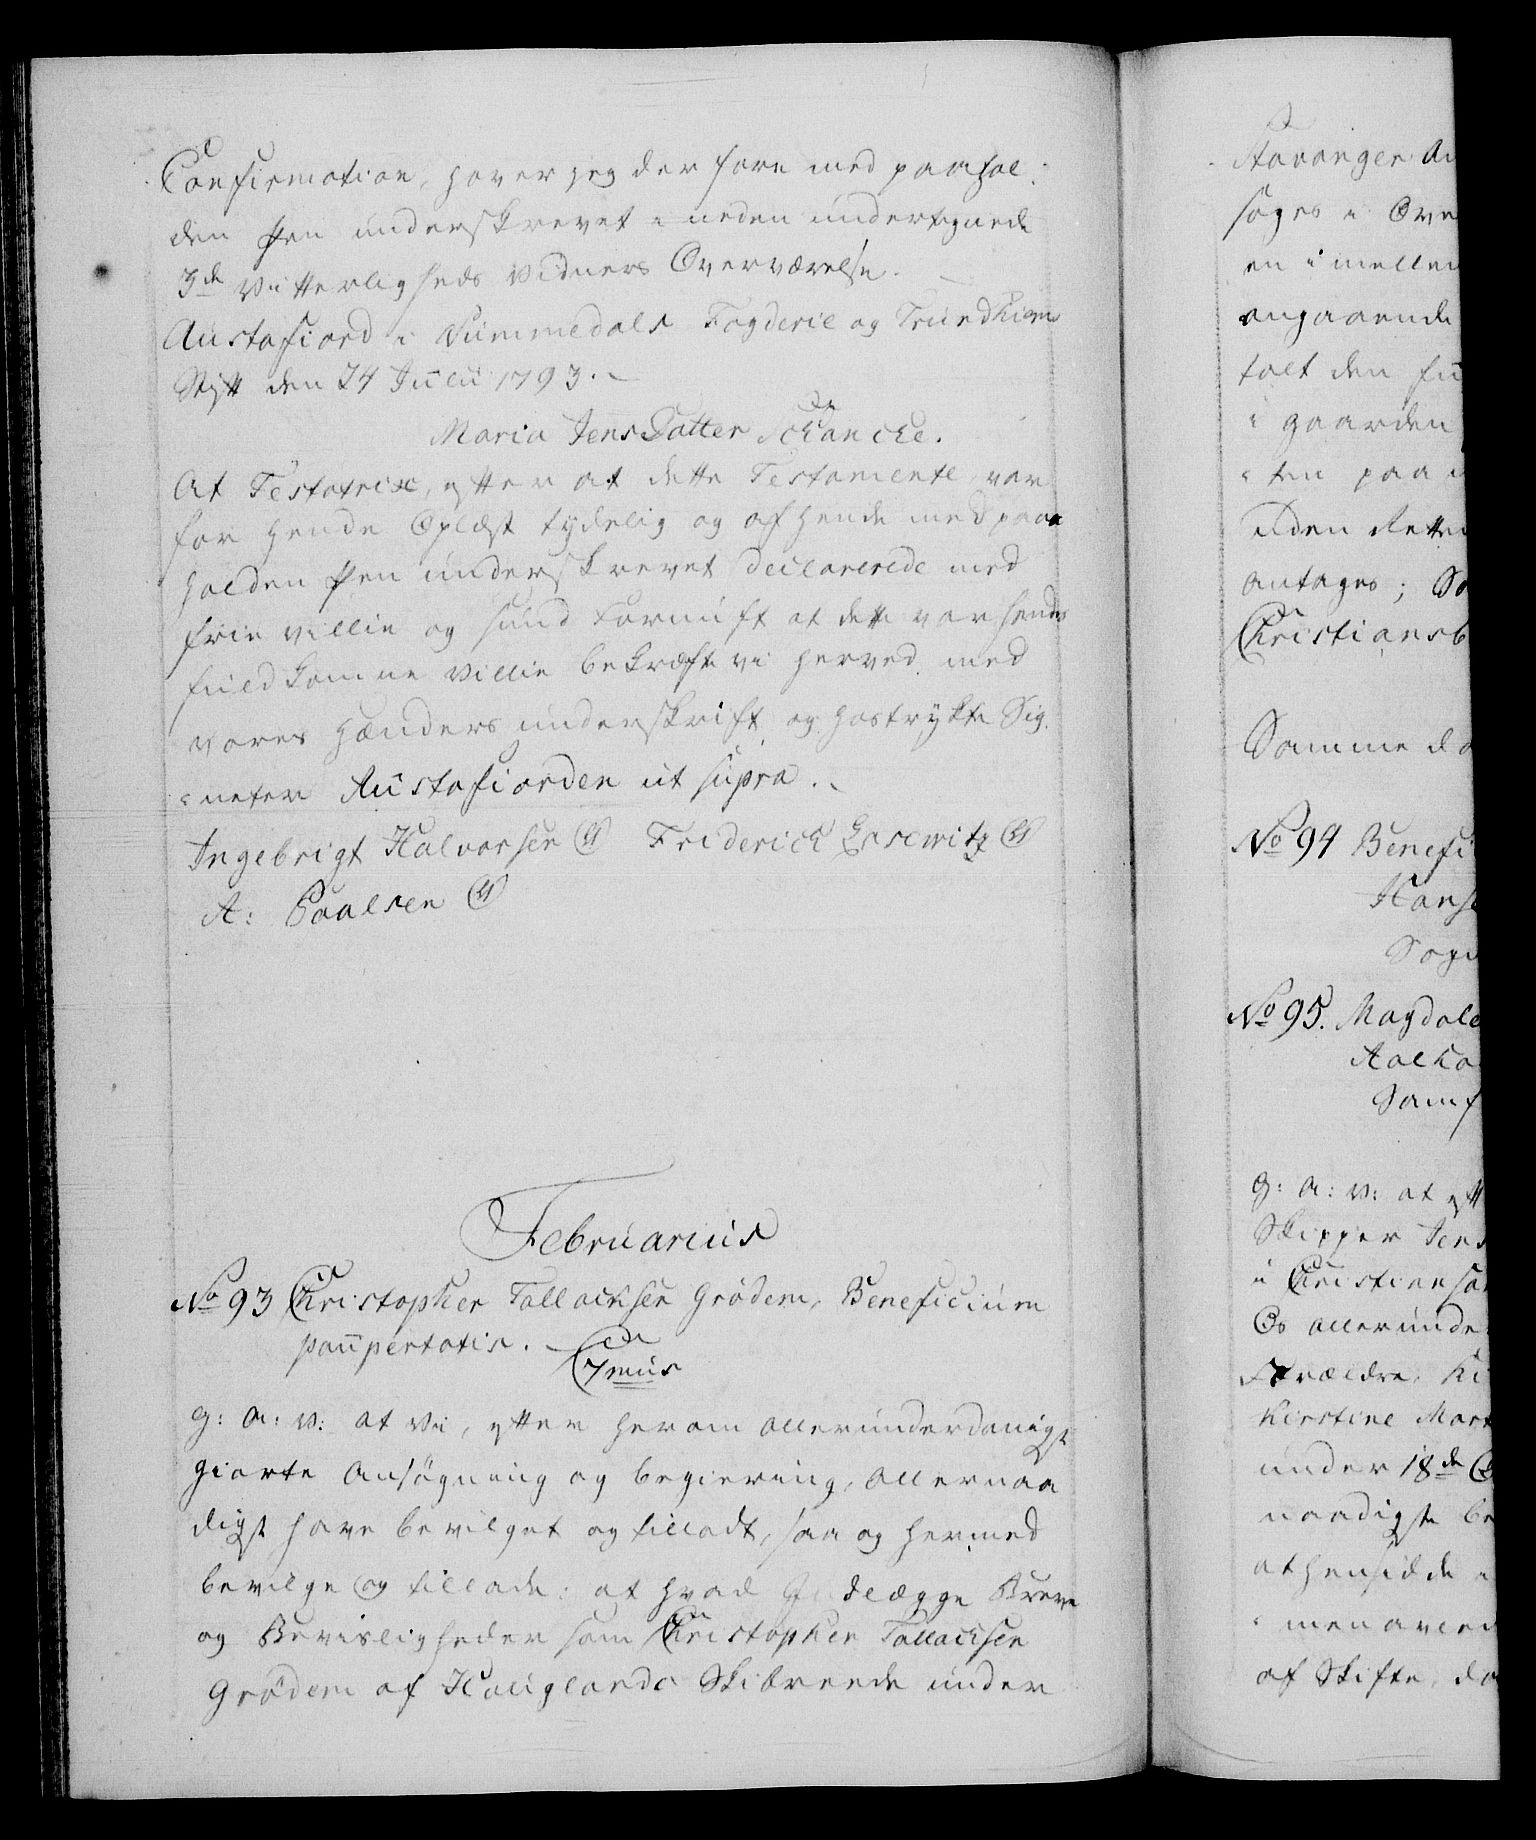 Confirmation, haver jeg der fore med paahol-
den Pen underskrevet i neden undertegnede
3de Vitterligheds Vidners Overværelse.
Austafiord i Nummedals Fogderie og Trundhiems
Stift den 24 Julii 1793.
Maria JensDatter Schancke.
At Testatrix, efter at dette Testamente var
for hende Oplæst tydelig og af hende med paa-
holden Pen underskrevet declarerede med
frie villie og sund Fornuft at dette var hendes
fuldkomne Villie bekræfte vi herved med
vores hænders underskrift og hostrykte Sig-
neter Austafiorden ut supra.
Ingebrigt Halvorsen Friderich
A: Paalsen
Februarius
No 93 Christopher Tallachsen Grödem, Beneficium
paupertatis.
7mus
G: A: V: at Vi, efter herom allerunderdanigst
giorte Ansøgning og begiering, allernaa
digst have bevilget og tilladt, saa og hermed
bevilge og tillade: at hvad Indlægge Breve
og Bevisligheder som Christopher Tallachsen
Grödem af Hauglands Skibreede under
Stavanger
søges i
en imellem
angaaende
talt den
i gaarden
ten paa
uden Rettens
antages;
Christiansb
Samme
No 94 Benefi
Hans
Sogn
No 95. Magdale
Aalho
Samf
G: A: V: at eft
Skipper Jens
i Christiansa
Os allerunde
Forældre, Ki
Kirstine Mart
under 18de
naadigste be
at hensidde
af Skifte, da